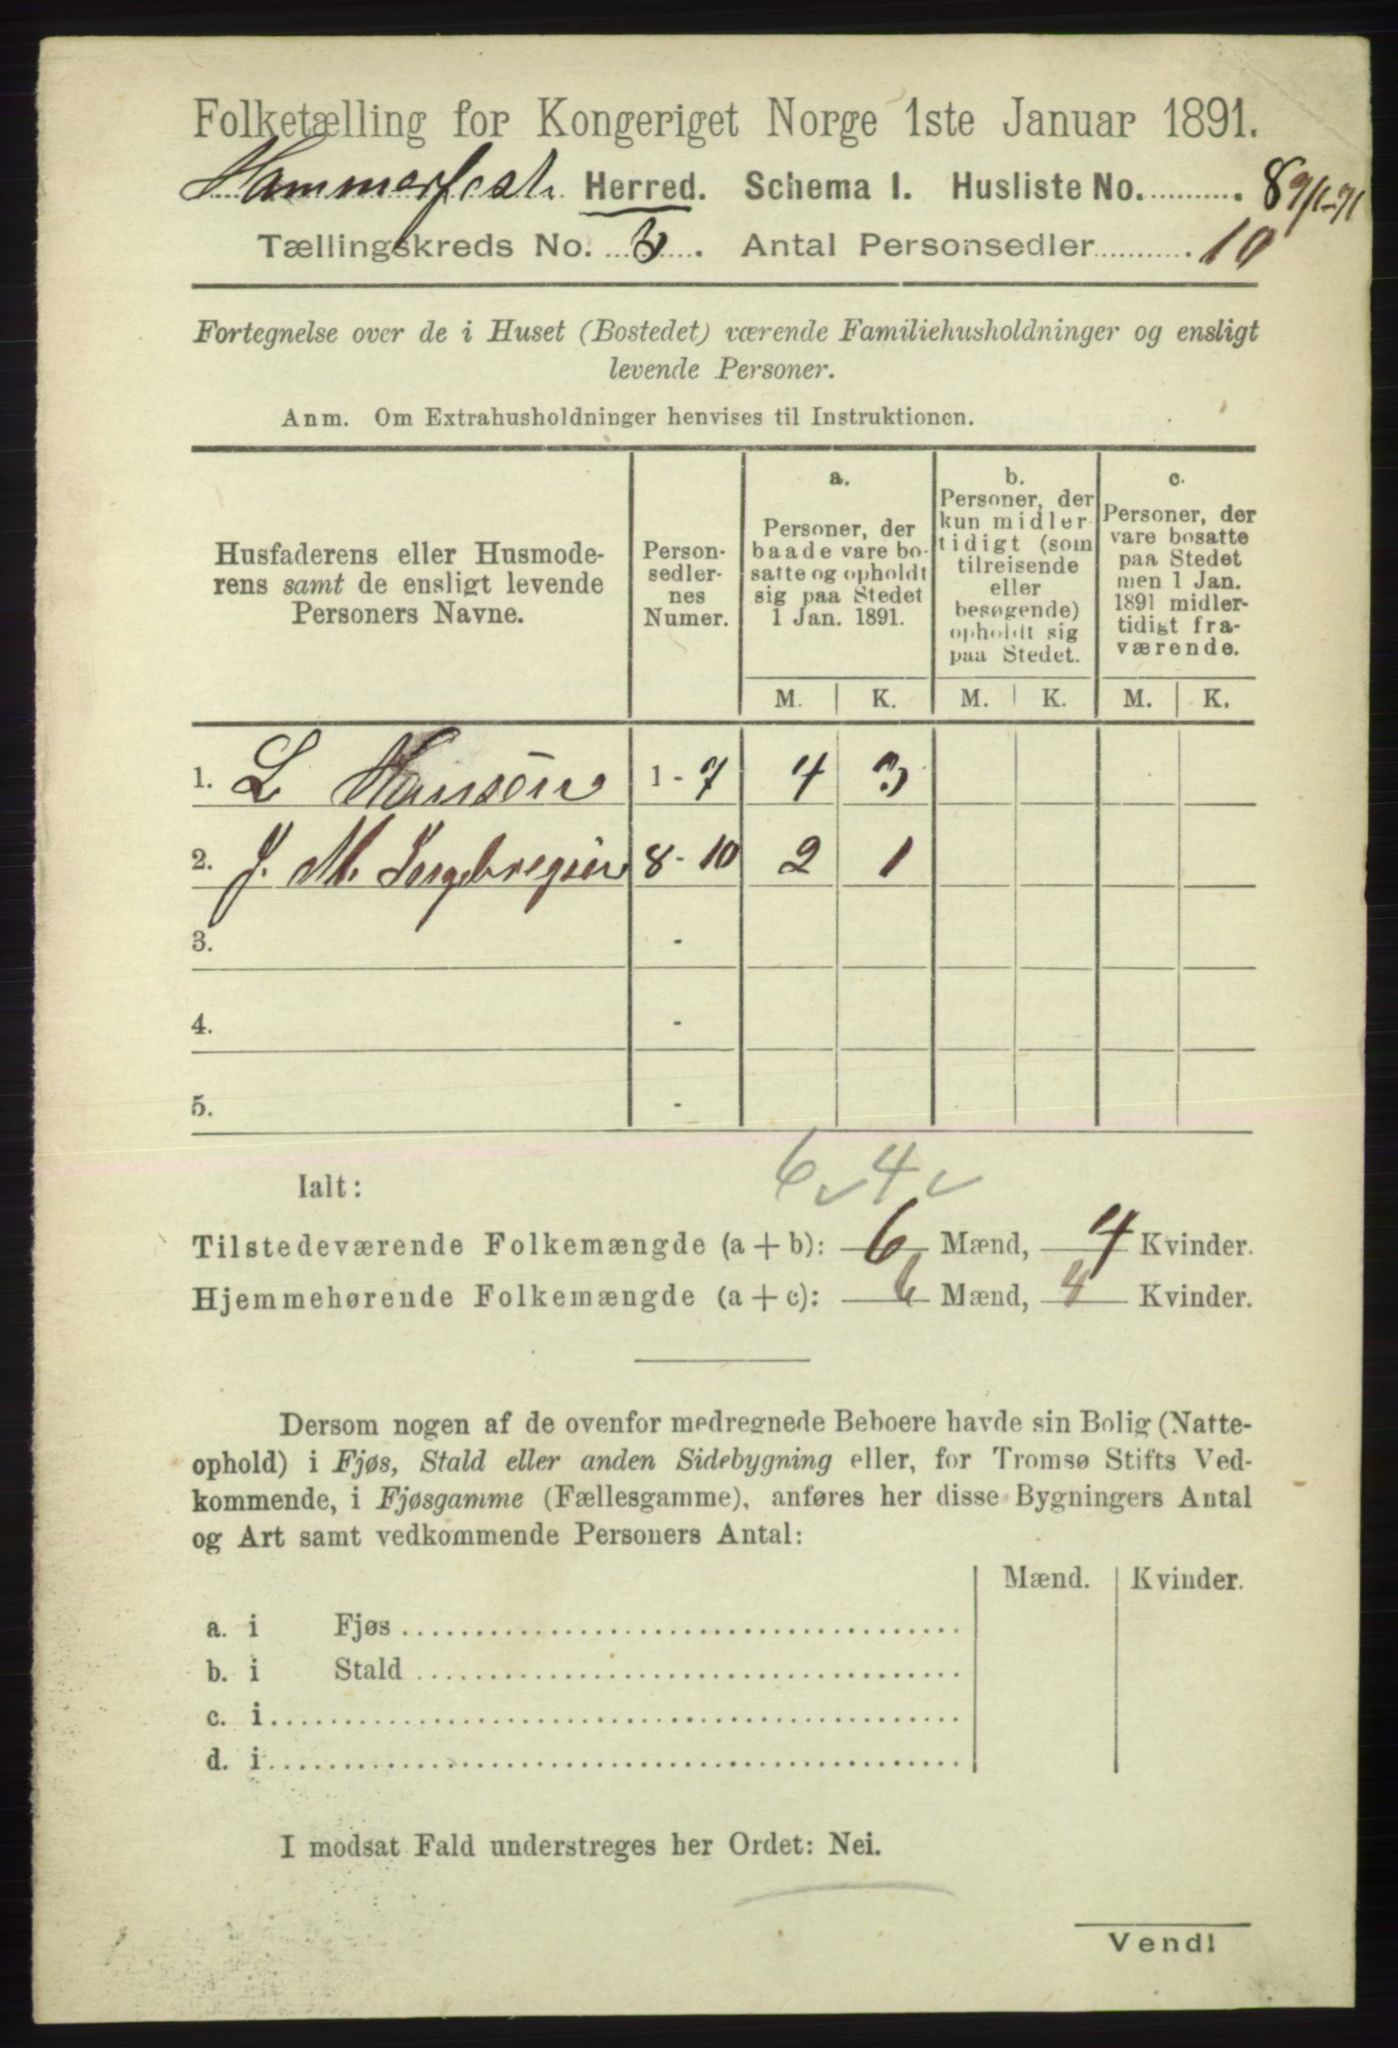 Folketælling for Kongeriget Norge 1ste Januar 1891.
Hammerfest Herred. Schema I. Husliste No. 8
Tællingskreds No. 3. Antal Personsedler 10
Fortegnelse over de i Huset (Bostedet) værende Familiehusholdninger og ensligt
levende Personer.
Anm. Om Extrahusholdninger henvises til Instruktionen.
Husfaderens eller Husmode-
rens samt de ensligt levende
Personers Navne.
Person-
sedler-
nes
Numer.
a.
Personer, der
baade vare bo-
satte og opholdt
sig paa Stedet
1 Jan. 1891.
b.
Personer, der
kun midler-
tidigt (som
tilreisende
eller
besøgende)
opholdt sig
paa Stedet.
c.
Personer, der
vare bosatte
paa Stedet
men 1 Jan.
1891 midler-
tidigt fra-
værende.
M. K. M. K. M. K.
1. L Hansen 1 - 7 4 3
2. J. M. 8 - 10 2 1
3. -
4. -
5. -
6 4
Ialt:
Tilstedeværende Folkemængde (a + b): 6 Mænd, 4 Kvinder.
Hjemmehørende Folkemængde (a + c): 6 Mænd, 4 Kvinder.
Dersom nogen af de ovenfor medregnede Beboere havde sin Bolig (Natte-
ophold) i Fjøs, Stald eller anden Sidebygning eller, for Tromsø Stifts Ved-
kommende, i Fjøsgamme (Fællesgamme), anføres her disse Bygningers Antal
og Art samt vedkommende Personers Antal:
Mænd. Kvinder.
a. i Fjøs
b. i Stald
c. i
d. i
I modsat Fald understreges her Ordet: Nei.
Vend!